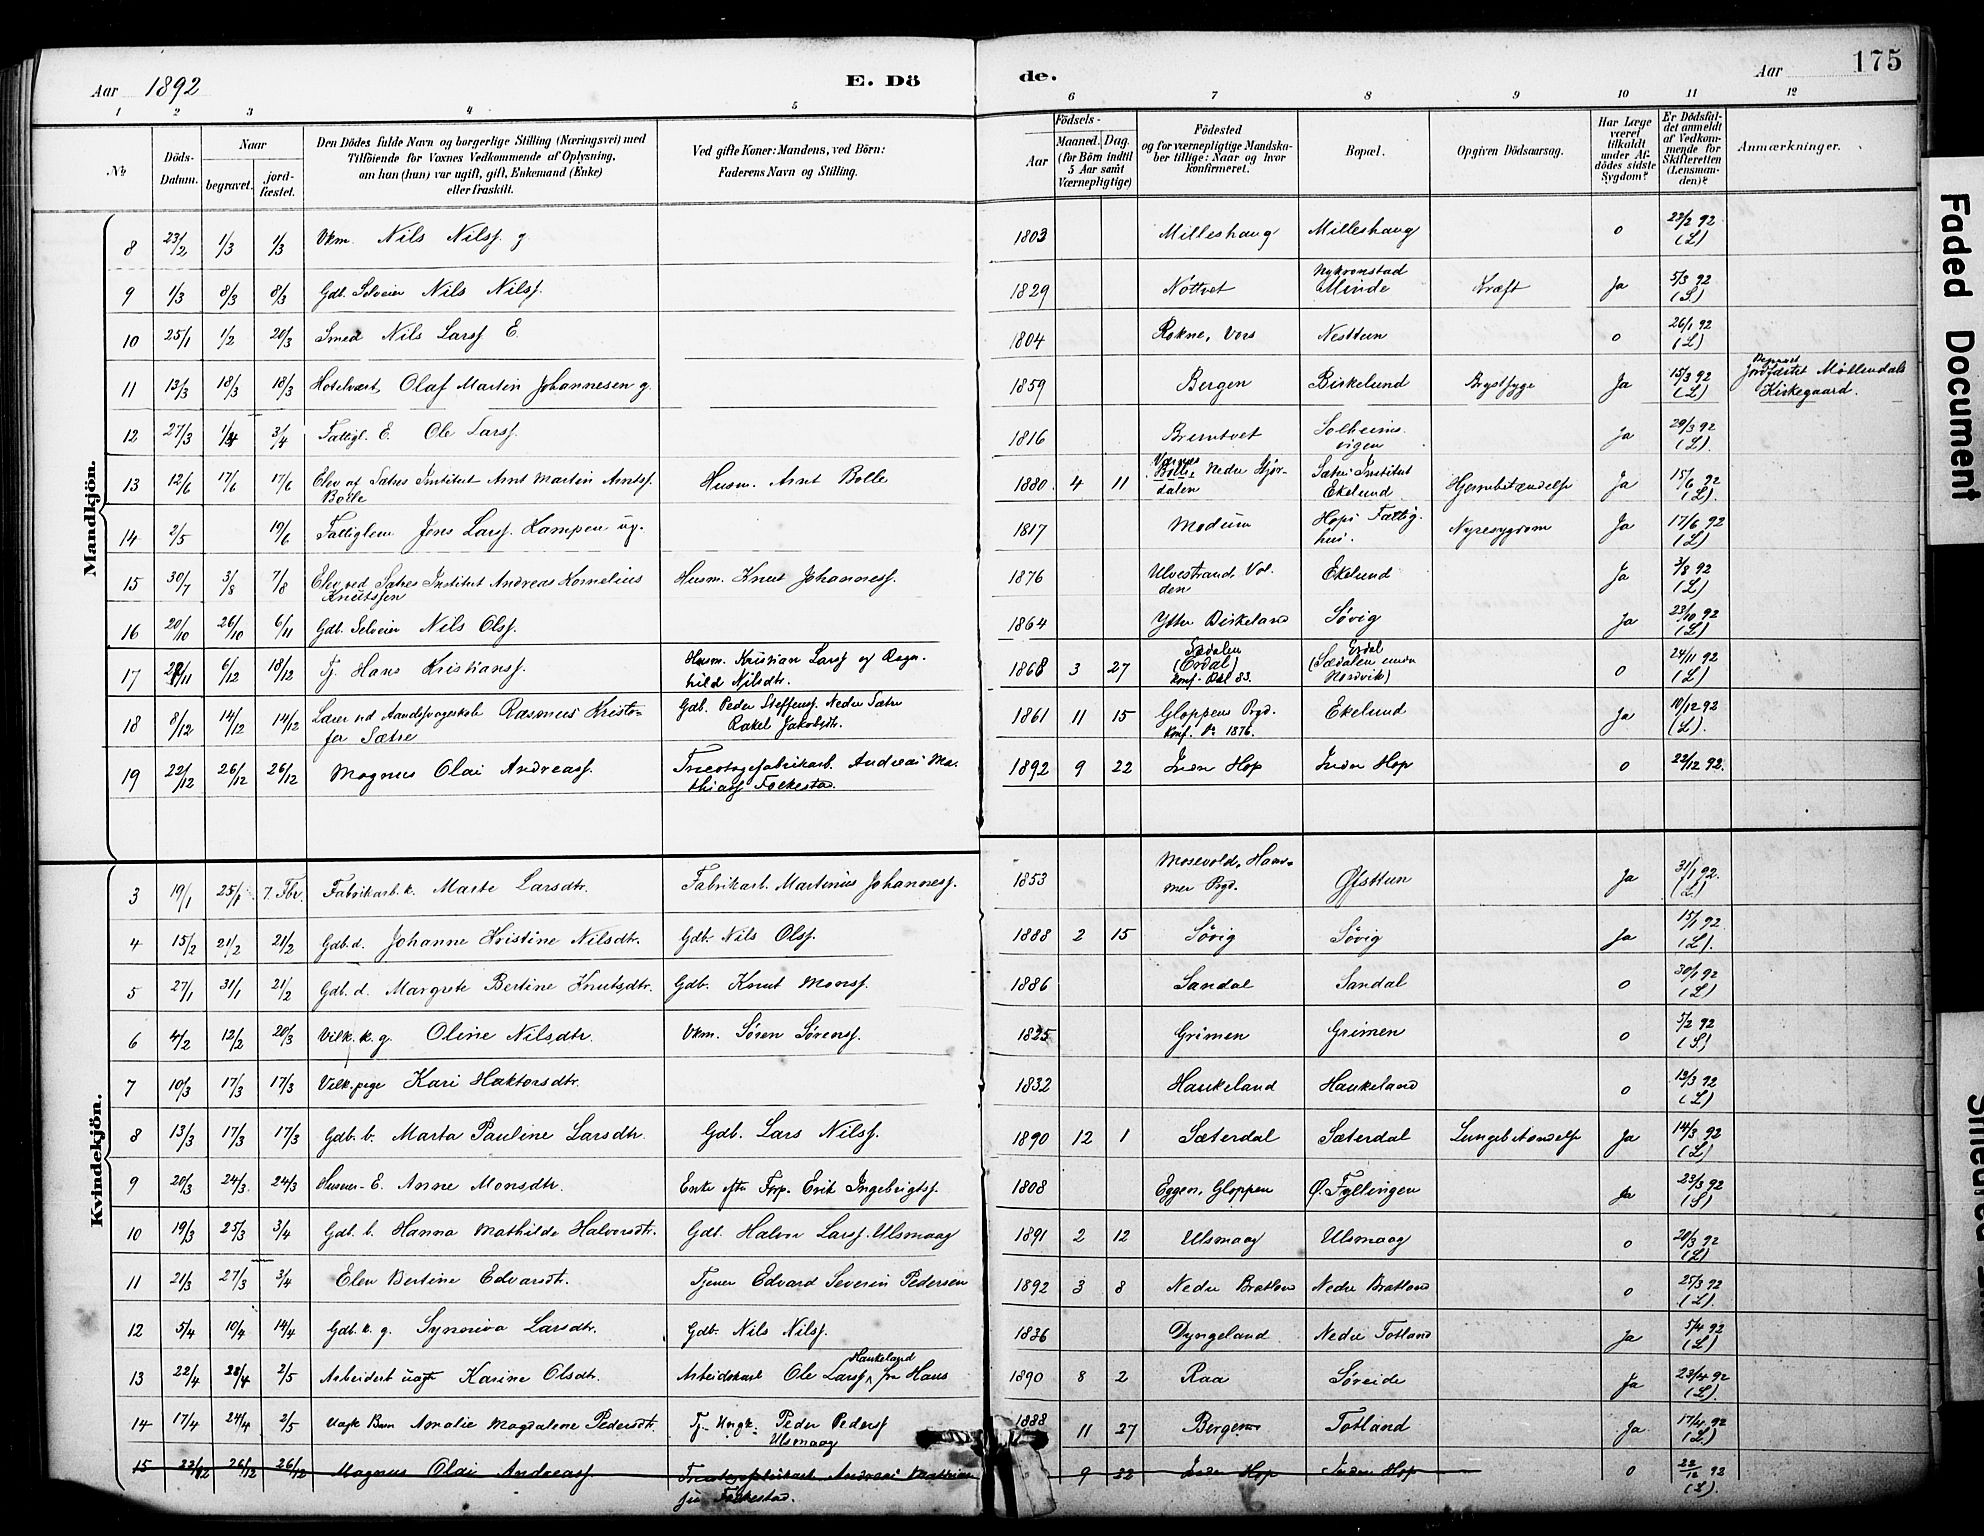 Aar 1892
E. Döde.
Aar
175
1 2 3 4 5 6 7 8 9 10 11 12
No
Döds-Datum.
Naar
begravet.
jord-fæstet.
Den Dödes fulde Navn og borgerlige Stilling (Næringsvei) med Tilföiende for Voxnes Vedkommende af Oplysning, om han (hun) var ugift, gift, Enkemand (Enke) eller fraskilt.
Ved gifte Koner: Mandens, ved Börn: Faderens Navn og Stilling.
Födsels-
Aar
Maaned. Dag.
(for Börn indtil 5 Aar samt Værnepligtige)
Födested og for værnepligtige Mandskaber tillige: Naar og hvor konfirmeret.
Bopæl.
Opgiven Dödsaarsag.
Har Læge været tilkaldt under Afdödes sidste Sygdom?
Er Dödsfaldet anmeldt af Vedkommende for Skifteretten (Lensmanden)?
Anmærkninger.
Mandkjön.
8 23/2 1/3 1/3 Vkm. Nils Nilsf. g 1803 Milleshaug Milleshaug o 22/2 92 (L)
9 1/3 8/3 8/3 Gdb. Selveier Nils Nilsf. 1829 Nottvet Nykronstad Minde Kræft Ja 5/3 92 (S)
10 25/1 1/2 20/3 Smed Nils Larsf E. 1804 Rokne, Vors Nesttun o 26/1 92 (L)
11 13/3 18/3 18/3 Hotelvært Olaf Martin Johannesen g. 1859 Bergen Birkelund Brystsyge Ja 15/3 92 (L) Møllendals Kirkegaard.
12 27/3 1/4 3/4 Fattigl. E. Ole Larsf. 1816 Bremtvet Solheimsvigen Ja 29/3 92 (L)
13 12/6 17/6 17/6 Elev af Sætres Institut Arnt Martin Arntsf. Bolle Husm. Arnt Bolle 1880 4 11 Værnes Bolle, Nedre Stjørdalen Sætres Institut Ekelund Hjernebetændelse Ja 15/6 92 (L).
14 2/5 19/6 Fattiglem Jens Larsf. Kampen ug. 1817 Modum Hops Fattighus. Nyresygdom Ja 17/6 92 (L)
15 30/7 3/8 7/8 Elev ved Sætres Institut Andreas Kornelius Knutssen Husm. Knut Johannesf. 1876 Ulvestrand, Volden Ekelund Ja 3/8 92 (L)
16 20/10 26/10 6/11 Gdb. Selveier Nils Olsf. 1864 Ytter Birkeland Søvig Ja 23/10 92 (L)
17 6/12 18/12 Tj. Hans Kristiansf. Husm. Kristian Larsf og Ragnhild Nilsdtr. 1868 3 27 Sædalen konf. 83. (Sædalen under Nordvik) o 24/11 92 (L)
18 8/12 14/12 14/12 Lærer ved Aandssvageskole Rasmus Kristofer Sætre Gdb. Peder Steffensf. Nedre Sætre Rakel Jakobsdtr. 1861 11 15 Gloppens Prgd. konf. 1876. Ekelund Ja 10/12 92 (L).
19 22/12 26/12 26/12 Magnus Olai Andreasf. Tricotagefabrikarb. Andreas Mathiasf Folkestad. 1892 9 22 Indre Hop Indre Hop o 22/12 92.
Kvindekjön.
3 19/1 25/1 7. Fbr. Fabrikarb. k. Marte Larsdtr. Fabrikarb. Martinus Johannesf. 1853 Mosevold, Hammer Prgd. Øfsttun Ja 31/1 92. (L)
4 15/2 21/2 21/2 Gdb. d. Johanne Kristine Nilsdtr. Gdb. Nils Olsf. 1888 2 15 Søvig Søvig Ja 15/1 92. (L).
5 27/1 31/1 21/2 Gdb. d. Margrete Bertine Knutsdtr. Gdb. Knut Monsf. 1886 Sandal Sandal o 30/1 92 (L)
6 4/2 12/2 20/3 Vilk. k. g. Oline Nilsdtr. Vkm. Søren Sørensf. 1825 Grimen Grimen o 5/2 92 (S)
7 10/3 17/3 17/3 Vilk. pige Kari Haktorsdtr. 1832 Haukeland Haukeland o 13/3 92 (L)
8 13/3 17/3 17/3 Gdb. b. Marta Pauline Larsdtr. Gdb. Lars Nilsf. 1890 12 1 Sæterdal Sæterdal Lungebetændelse Ja 14/3 92 (L)
9 20/3 24/3 24/3 Husm. E. Anne Monsdtr. Enke efter Fpp. Erik Ingebrigtsf. 1808 Eggen, Gloppen Ø. Fyllingen Ja 23/3 92 (S)
10 19/3 25/3 3/4 Gdb. b. Hanna Mathilde Halvorsdtr. Gdb. Halvor Larsf. Ulsmaag 1891 2 12 Ulsmaag Ulsmaag o 20/3 92 (L)
11 21/3 27/3 3/4 Elen Bertine Edvardsdtr. Tjener Edvard Severin Pedersen 1892 3 8 Nedre Bratland Nedre Bratland o 25/3 92 (L).
12 5/4 10/4 14/4 Gdb. k. g. Synneva Larsdtr. Gdb. Nils Nilsf. 1836 Dyngeland Nedre Totland Ja 5/4 92 (L)
13 22/4 28/4 2/5 Arbeidert uægte Karine Olsdtr. Arbeidskarl Ole Larsf fra Haus Haukeland 1890 8 2 Raa Søreide Ja 23/4 92 (L).
14 17/4 24/4 2/5 Uægte Barn Amalie Magdalene Pedersdtr. Tj. Ungk. Peder Pedersf Ulsmaag 1888 11 27 Bergen Totland Ja 17/4 92 (L)
15 22/12 26/12 26/12 Magnus Olai Andreasf. Tricotagefabrikarb. Andreas Mathiasf Folkestad. 9 22 Indre Hop Indre Hop o 22/12 92 (L).
Faded Document